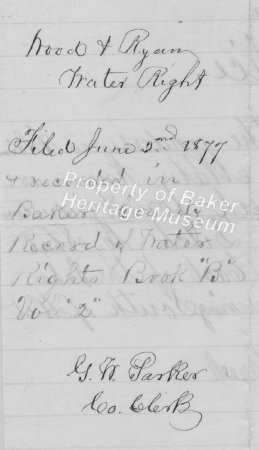 Wood & Ryan
Water Right
Filed June 2nd 1877
& recorded in
Baker County
Record of Water
Rights Book "B"
Vol "2"
G. W. Parker
Co. Clerk
Property of Baker
Heritage Museum